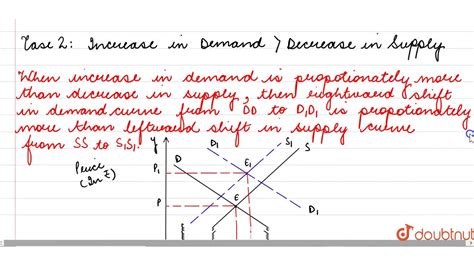 Case 2: Increase in Demand > Decrease in Supply
When increase in demand is propotionately more
than decrease in supply, then rightward shift
in demand curve from DD to D1D1 is propotionately
more than leftward shift in supply curve
from SS to S1S1.
Price
(in ₹)
y
D
D1
S1
S
P1
E1
P
E
D1
doubtnut